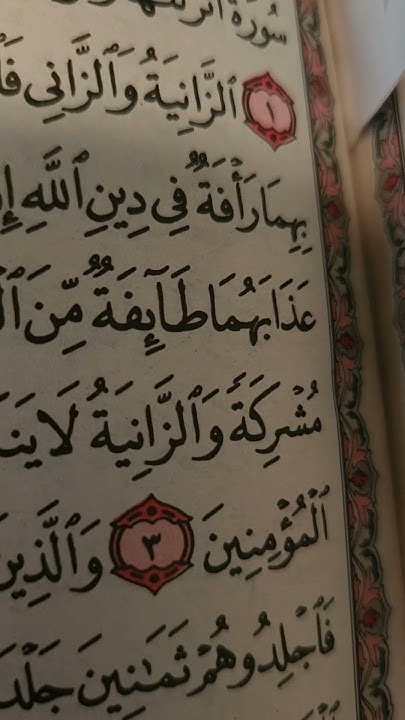 سُورَةٌ أَنزَلْنَٰهَا
١ ٱلزَّانِيَةُ وَٱلزَّانِى
بِهِمَا رَأْفَةٌ فِى دِينِ ٱللَّهِ إِن
عَذَابَهُمَا طَآئِفَةٌ مِّنَ
مُشْرِكَةً وَٱلزَّانِيَةُ لَا
ٱلْمُؤْمِنِينَ ٣ وَٱلَّذِينَ
فَٱجْلِدُوهُمْ ثَمَٰنِينَ جَلْدَ